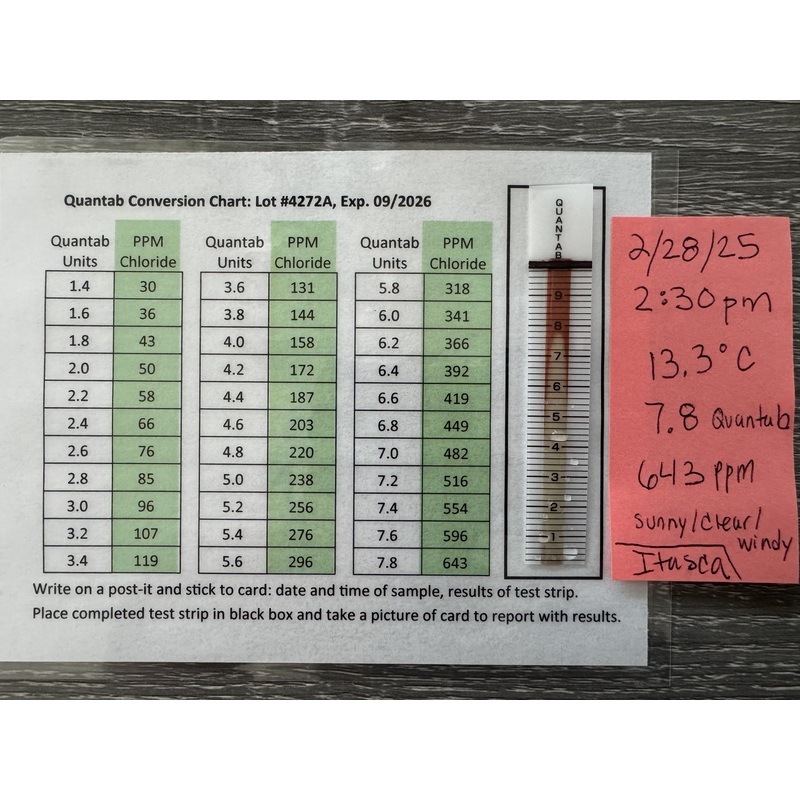 Quantab Conversion Chart: Lot #4272A, Exp. 09/2026
Quantab Units PPM Chloride Quantab Units PPM Chloride Quantab Units PPM Chloride
1.4 30 3.6 131 5.8 318
1.6 36 3.8 144 6.0 341
1.8 43 4.0 158 6.2 366
2.0 50 4.2 172 6.4 392
2.2 58 4.4 187 6.6 419
2.4 66 4.6 203 6.8 449
2.6 76 4.8 220 7.0 482
2.8 85 5.0 238 7.2 516
3.0 96 5.2 256 7.4 554
3.2 107 5.4 276 7.6 596
3.4 119 5.6 296 7.8 643
Write on a post-it and stick to card: date and time of sample, results of test strip.
Place completed test strip in black box and take a picture of card to report with results.
QUANTAB
9
8
7
6
5
4
3
2
1
2/28/25
2:30pm
13.3°C
7.8 Quantab
643 PPM
sunny/clear/
windy
Itasca